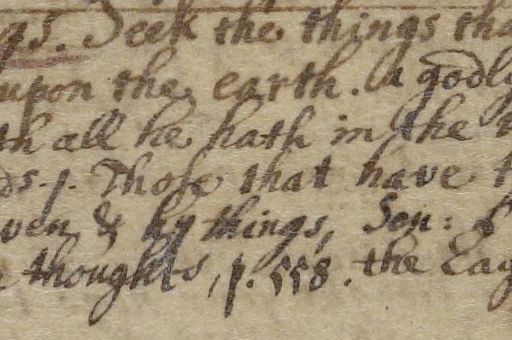 gs. Seek the things tha
upon the earth. a godly
th all he hath in the
ds. p. Those that have t
ven & by things, Sen:
thoughts, p. 558. the Eag